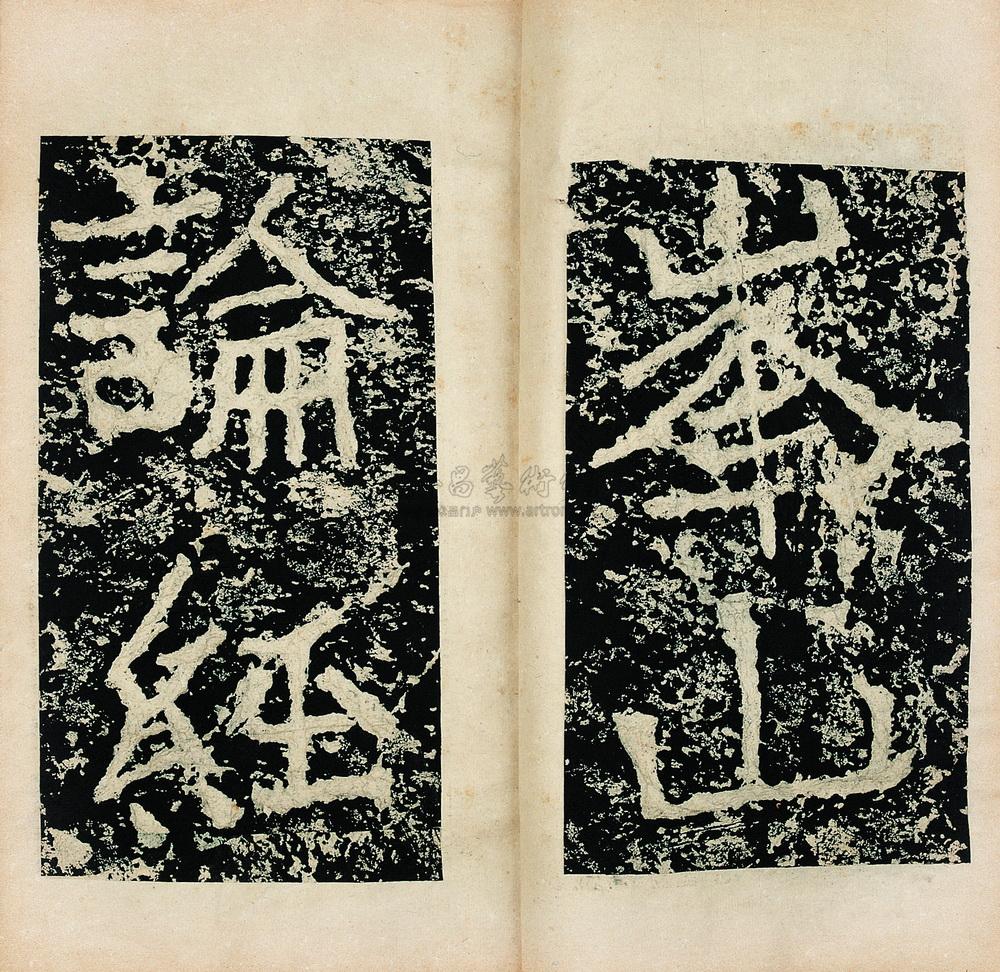 峯山
論經
昌藝術
www.artron